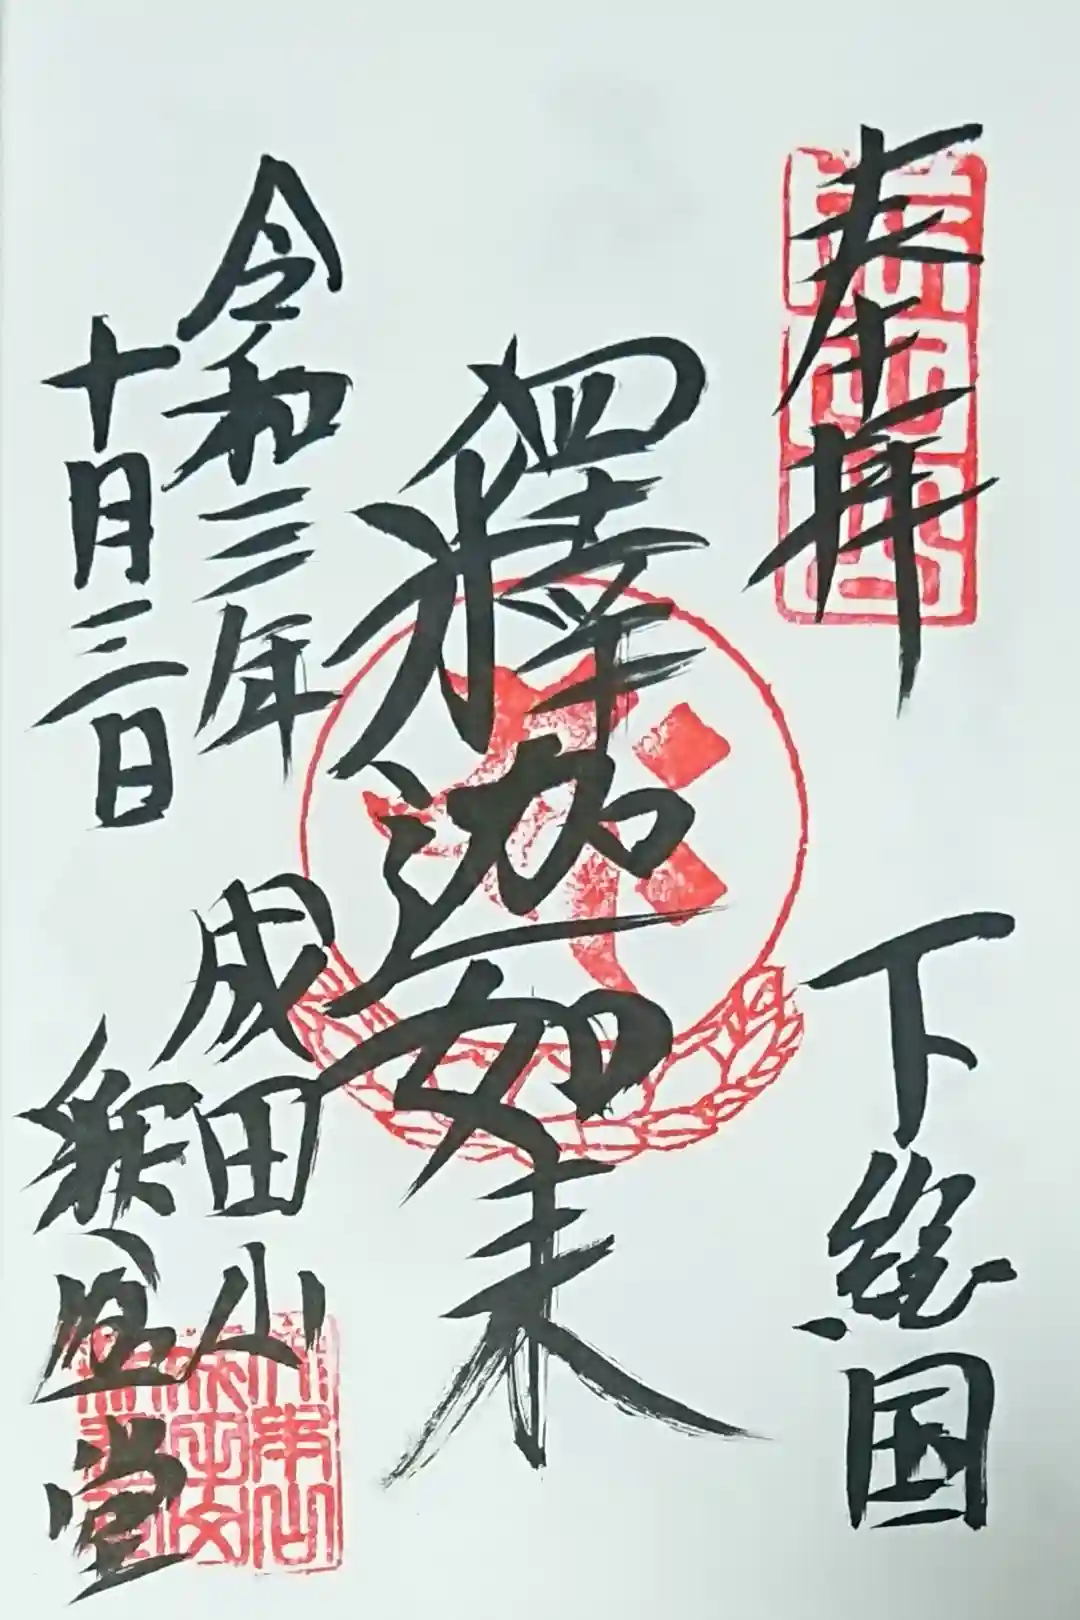 奉拝
下総国
釋迦如来
令和三年
十月三日
成田山
釈迦堂